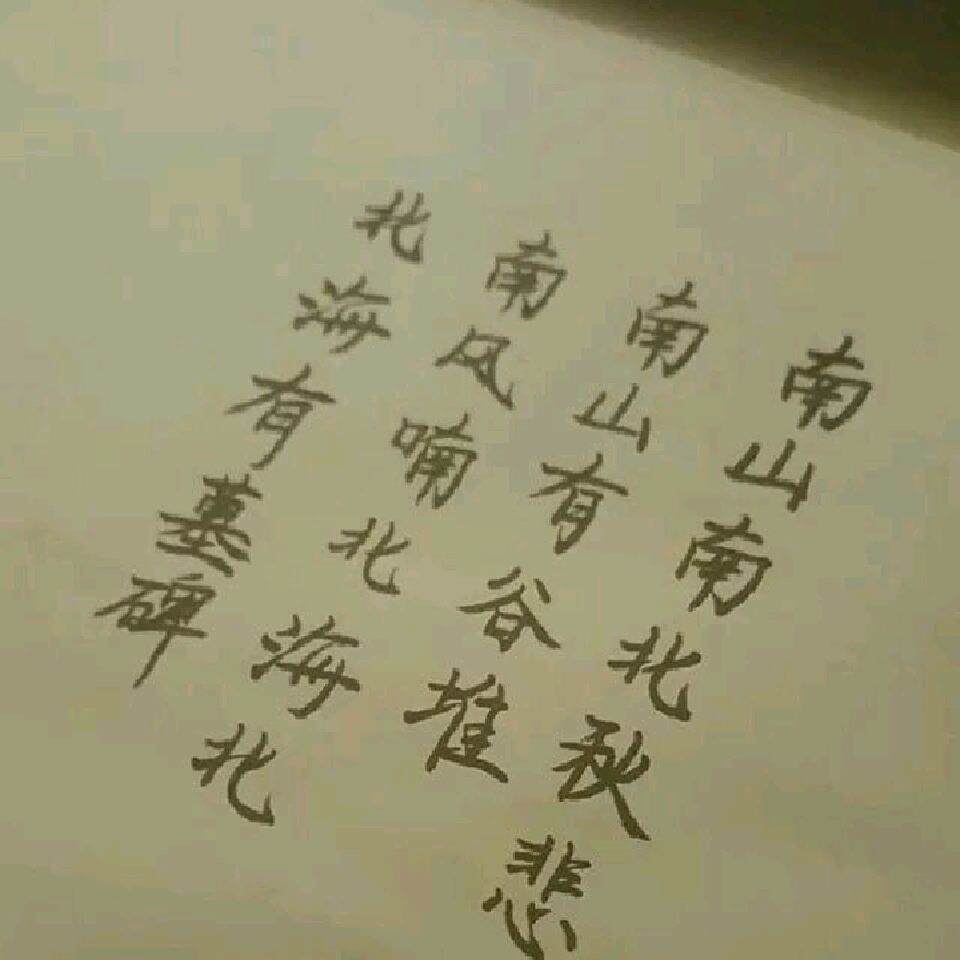 南山南北秋悲
南山有谷堆
南风喃北海北
北海有墓碑